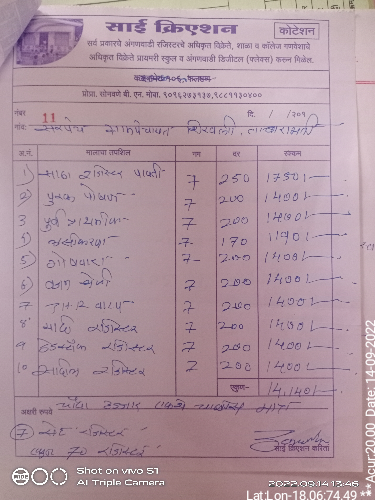 साई क्रिएशन
कोटेशन
सर्व प्रकारचे अंगणवाडी रजिस्टरचे अधिकृत विक्रेते, शाळा व कॉलेज गणवेशाचे
अधिकृत विक्रेते प्रायमरी स्कुल व अंगणवाडी डिजीटल (फ्लेक्स) करून मिळेल.
प्रोप्रा. सोनवणे बी. एन. मोबा.
नंबर 11
दि. / /२०१
गांव:
अ.नं. मालाचा तपशिल नग दर रक्कम
1) साठा रजिस्टर पावती 7 250 1750/-
2) पुरक पोषण 7 200 1400/-
3 पुर्व प्राथमिक 7 200 1400/-
4) लसीकरण 7- 170 1190/-
5) गोषवारा 7- 200 1400/-
6) 7 200 1400/-
7 T.H.R वाटप 7 200 1400/-
8' रजिस्टर 7 200 1400/-
9 हेडस्टॉक रजिस्टर 7 200 1400/-
10 रजिस्टर 7 200 1400/-
एकुण- 14,140/-
अक्षरी रुपये चौदा हजार एकशे चाळीस मात्र
7 सेट रजिस्टर
एकुण 70 रजिस्टर
साई क्रिएशन करिता
Shot on vivo S1
AI Triple Camera
2022.09.14 13:46
Lat:Lon-18.06;74.49***Acur:20.00 Date: 14-09-2022